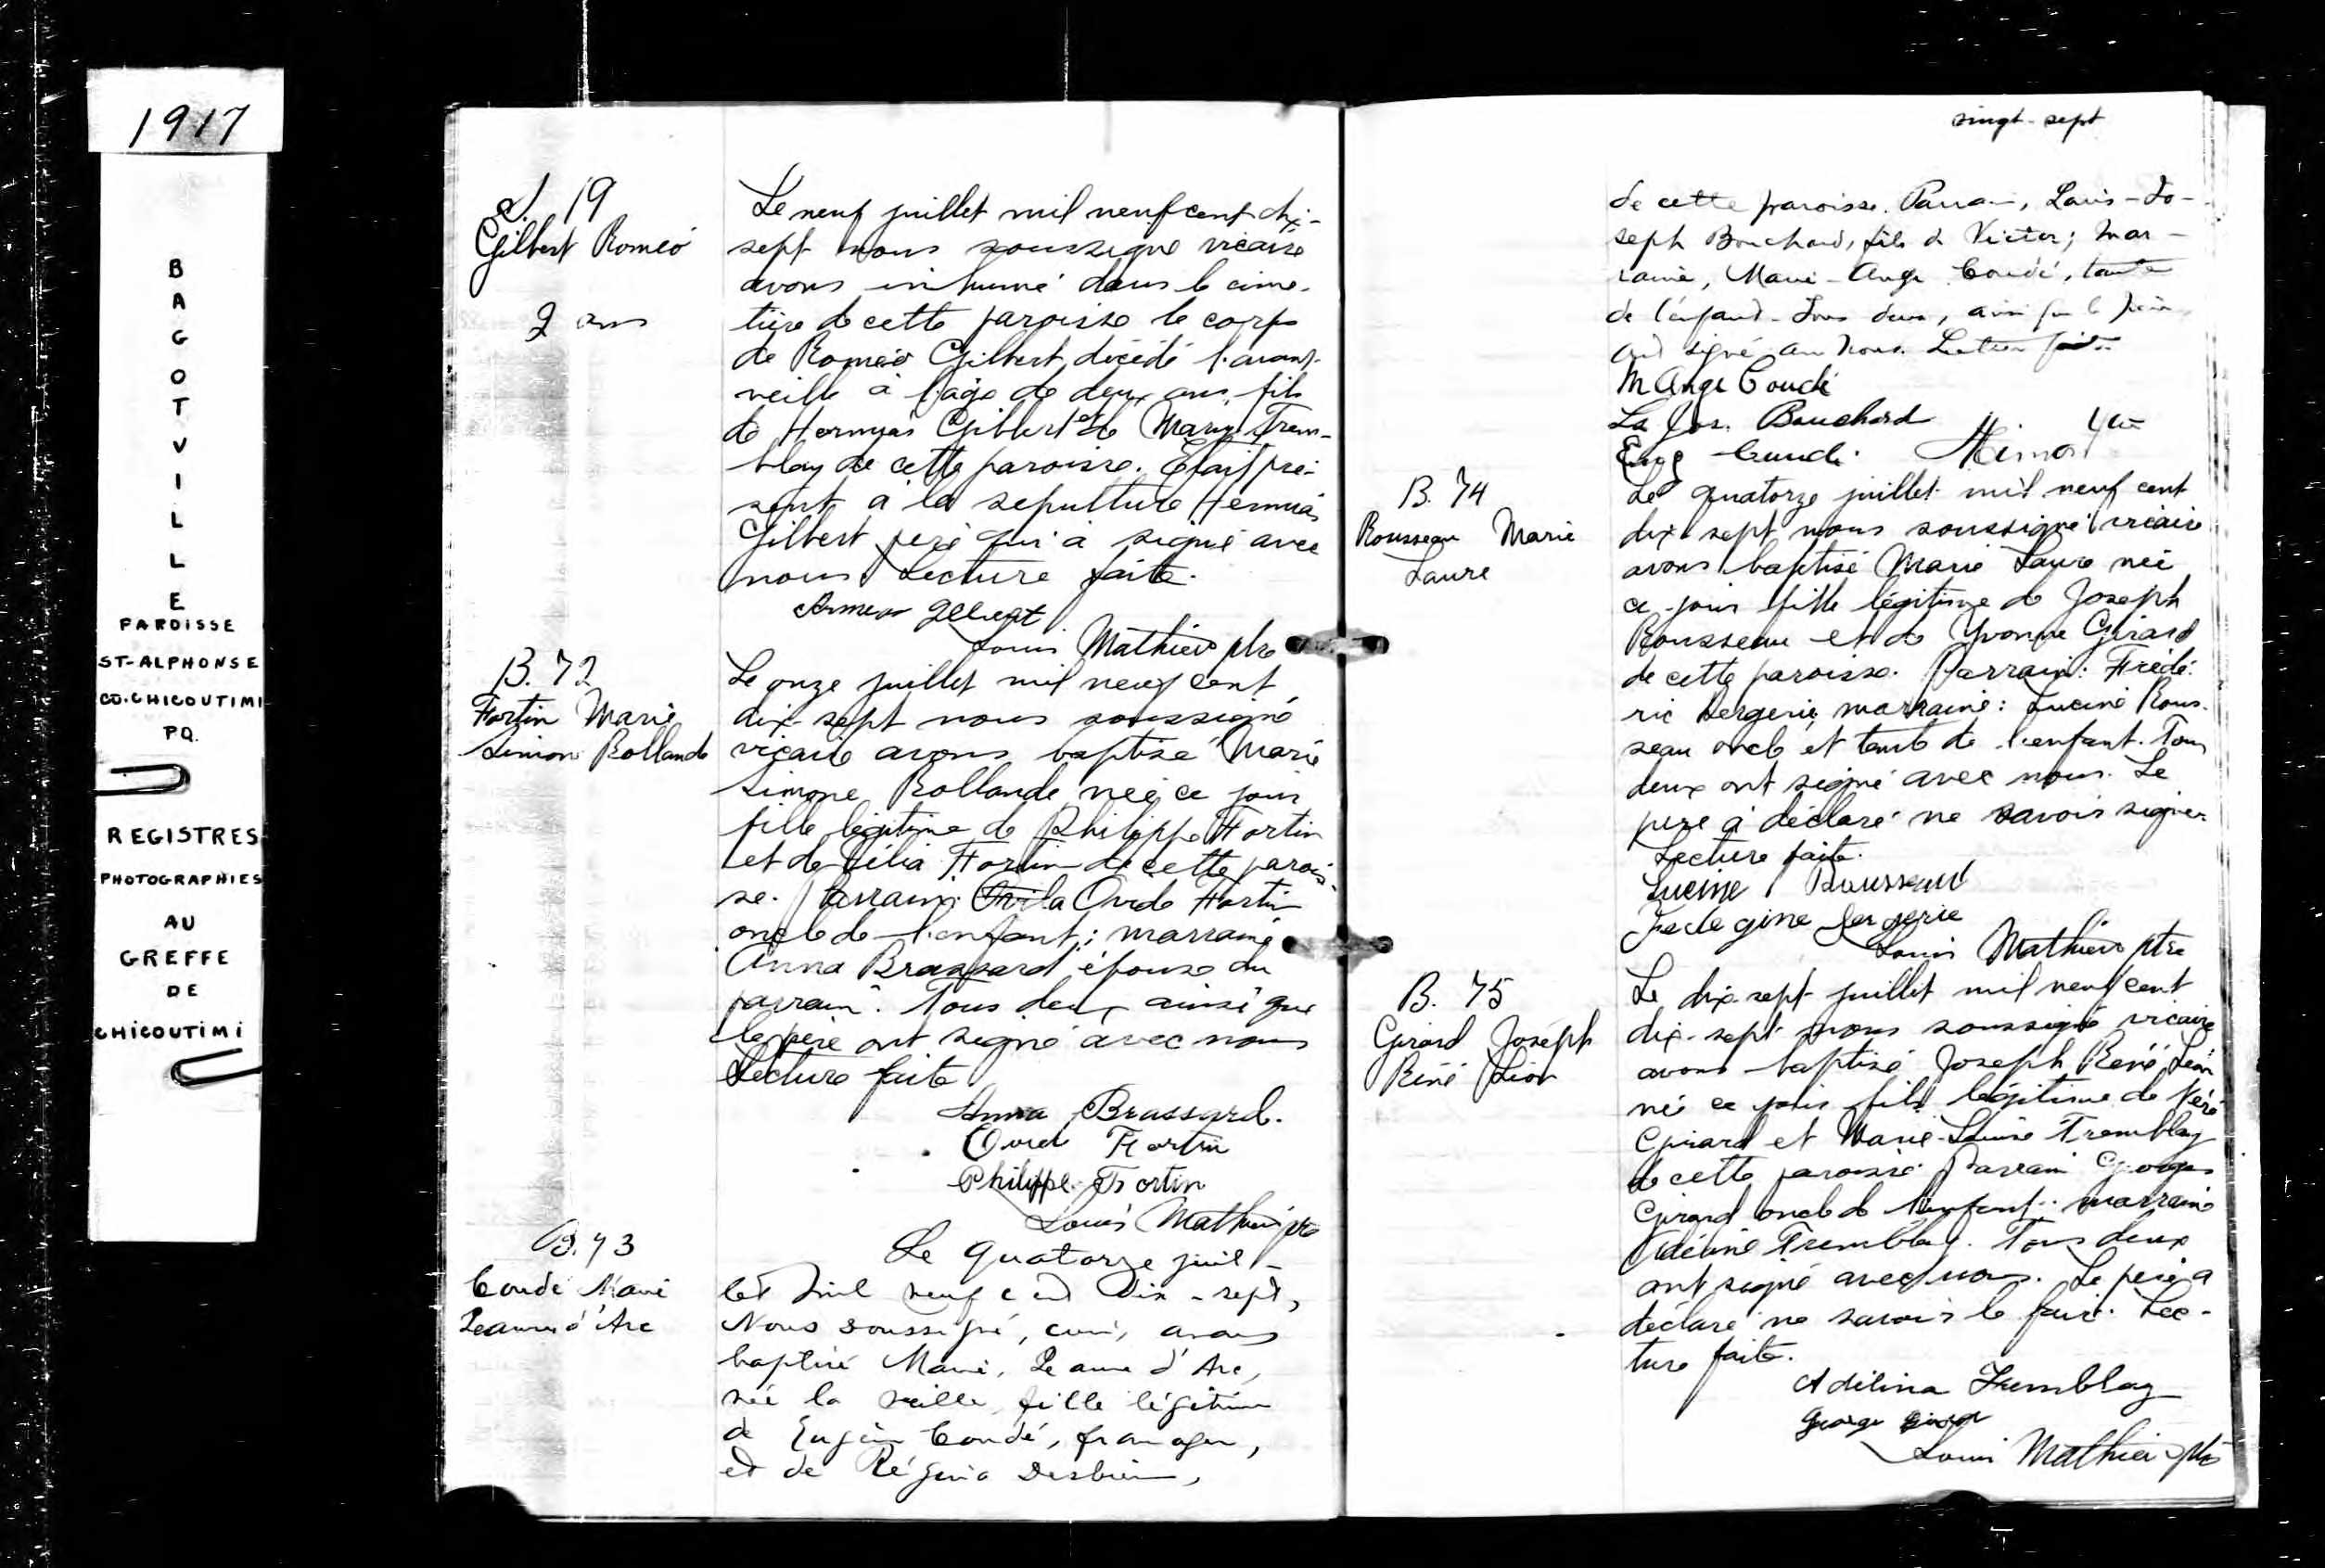 1917
BAGOTVILLE
PAROISSE
ST-ALPHONSE
CO. CHICOUTIMI
PQ.
REGISTRES
PHOTOGRAPHIES
AU
GREFFE
DE
CHICOUTIMI
S. 19
Gilbert Roméo
2 ans
Le neuf juillet mil neuf cent dix-
sept nous soussigné vicaire
avons inhumé dans le cime-
tière de cette paroisse le corps
de Roméo Gilbert, décédé l'avant-
veille à l'âge de deux ans, fils
de Hermias Gilbert et de Mary Trem-
blay de cette paroisse. Etait pré-
sent à la sepulture Hermias
Gilbert père qui a signé avec
nous Lecture faite.
Louis Mathieu ptre
B. 72
Fortin Marie
Simone Rollande
Le onze juillet mil neuf cent
dix-sept nous soussigné
vicaire avons baptisé Marie
Simone Rollande née ce jour
fille légitime de Philippe Fortin
et de Célia Fortin de cette parois-
se. Parrain: Ovide Fortin
oncle de l'enfant; marraine
Anna Brassard épouse du
parrain. Tous deux ainsi que
le père ont signé avec nous
Lecture faite
Anna Brassard.
Ovide Fortin
Philippe Fortin
Louis Mathieu ptre
B. 73
Coudé Marie
Jeanne d'Arc
Le quatorze juil-
let mil neuf cent dix-sept,
Nous soussigné, curé, avons
baptisé Marie, Jeanne d'Arc,
née la veille, fille légitime
de Eugène Coudé, fromager,
et de Régina Desbiens,
vingt-sept
de cette paroisse. Parrain, Louis-Jo-
seph Bouchard, fils de Victor; mar-
raine, Marie-Ange Coudé, tante
de l'enfant. Tous deux, ainsi que le père,
ont signé avec nous. Lecture faite.
M Ange Coudé
Ls Jos. Bouchard
Eug Coudé
B. 74
Rousseau Marie
Laure
Le quatorze juillet mil neuf cent
dix sept nous soussigné vicaire
avons baptisé Marie Laure née
ce jour fille légitime de Joseph
Rousseau et de Yvonne Girard
de cette paroisse. Parrain: Frédé-
ric Lergerie, marraine: Lucine Rous-
seau oncle et tante de l'enfant. Tous
deux ont signé avec nous. Le
père a déclaré ne savoir signer
Lecture faite.
Lucine Rousseau
Louis Mathieu ptre
B. 75
Girard Joseph
René Léon
Le dix-sept juillet mil neuf cent
dix-sept nous soussigné vicaire
avons baptisé Joseph René Léon
né ce jour fils légitime de Néré
Girard et Marie-Louise Tremblay
de cette paroisse. Parrain Georges
Girard oncle de l'enfant: marraine
Tremblay. Tous deux
ont signé avec nous. Le père a
déclaré ne savoir le faire. Lec-
ture faite.
Adélina Tremblay
George Girard
Louis Mathieu ptre